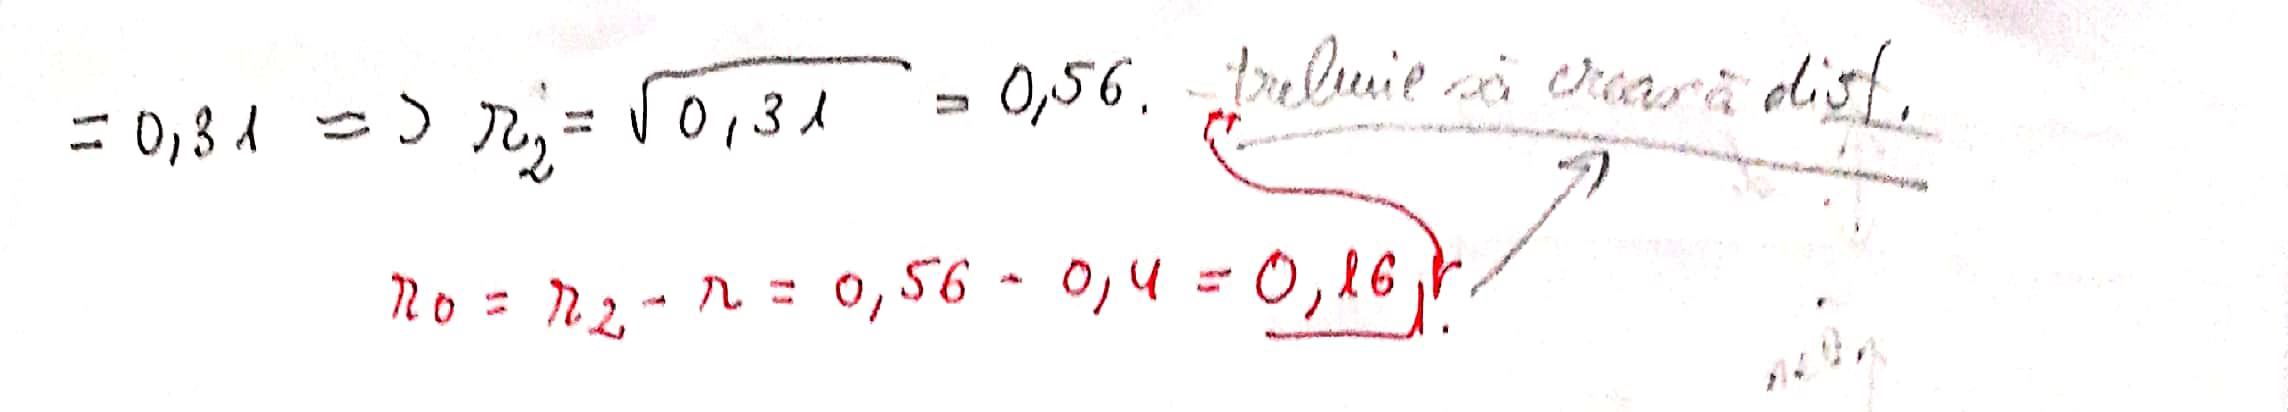 = 0,31 => r₂ = √0,31 = 0,56. - trebuie să crească dist.
r₀ = r₂ - r = 0,56 - 0,4 = 0,16